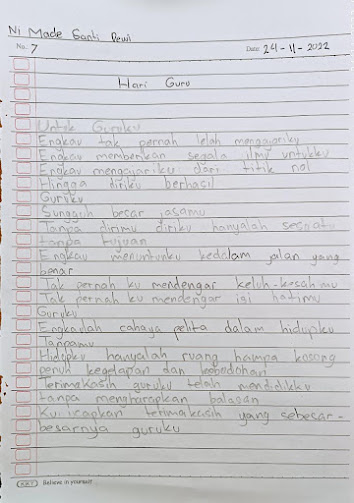 Ni Made Santi Dewi
No. 7 Date: 24-11-2022
Hari Guru
Untuk Guruku
Engkau tak pernah lelah mengajariku
Engkau memberikan segala ilmu untukku
Engkau mengajariku dari titik nol
Hingga diriku berhasil
Guruku
Sungguh besar jasamu
Tanpa dirimu diriku hanyalah sesuatu
tanpa tujuan
Engkau menuntunku kedalam jalan yang
benar
Tak pernah ku mendengar keluh-kesahmu
Tak pernah ku mendengar isi hatimu
Guruku
Engkaulah cahaya pelita dalam hidupku
Tanpamu
Hidupku hanyalah ruang hampa kosong
penuh kegelapan dan kebodohan
Terimakasih guruku telah mendidikku
tanpa mengharapkan balasan
Ku ucapkan terimakasih yang sebesar-
besarnya guruku
Believe in yourself